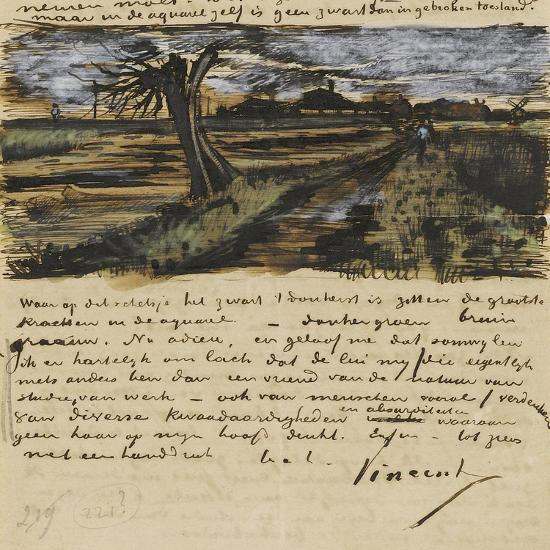 nemen moet
maar in de aquarel zelf is geen zwart dan in gebroken toestand.
Waar op dit schetsje het zwart 't donkerst is zitten de grootste
krachten in de aquarel — donkergroen bruin
graauw. Nu adieu, en geloof me dat somwijlen
ik er hartelijk om lach dat de lui mij /die eigentlijk
niets anders ben dan een vriend van de natuur van
studie, van werk — ook van menschen vooral/ verdenken
van diverse kwaadaardigheden en absurditeiten waaraan
geen haar op mijn hoofd denkt. Enfin — tot ziens
met een handdruk t. à t.
Vincent
219 221?